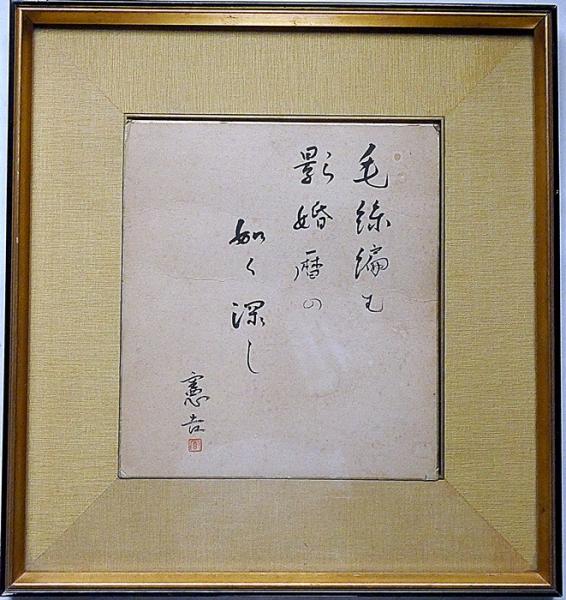 毛絲編む
影婚暦の
如く深し
憲吉